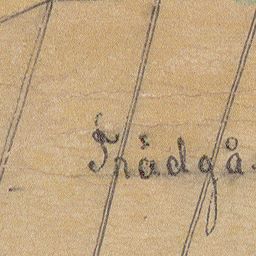 Trädgå.